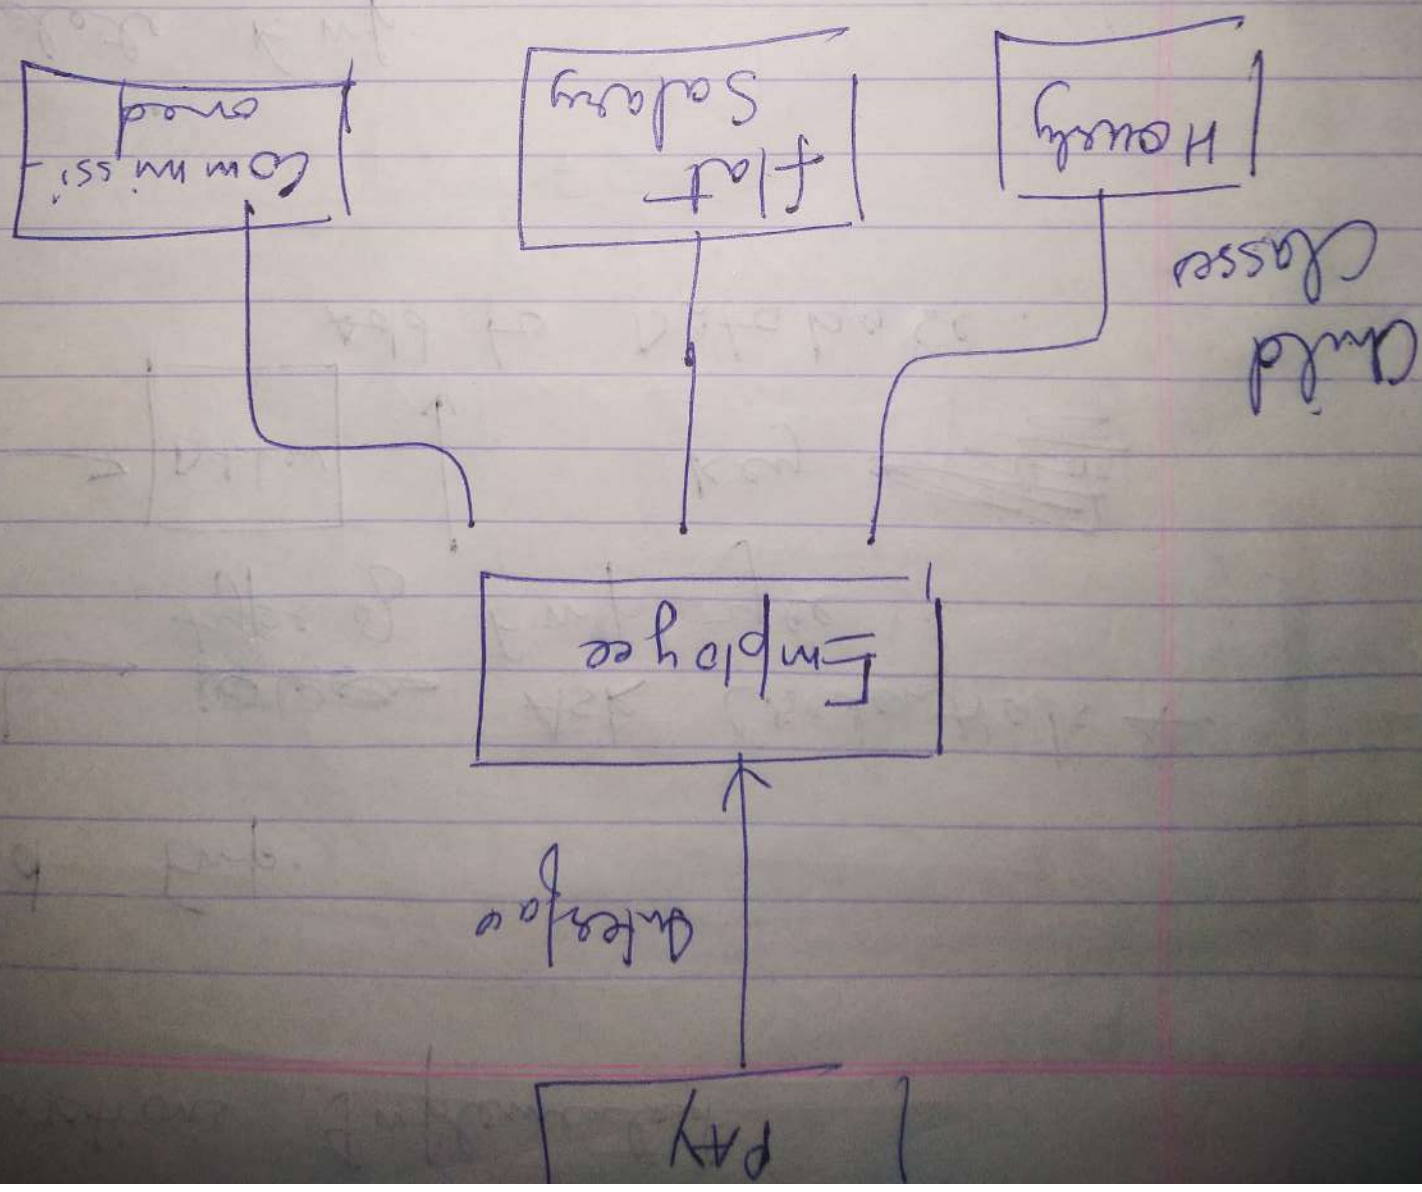 PAY
Interface
Employee
Child
Classes
Hourly
Flat
Salary
Commissi-
oned